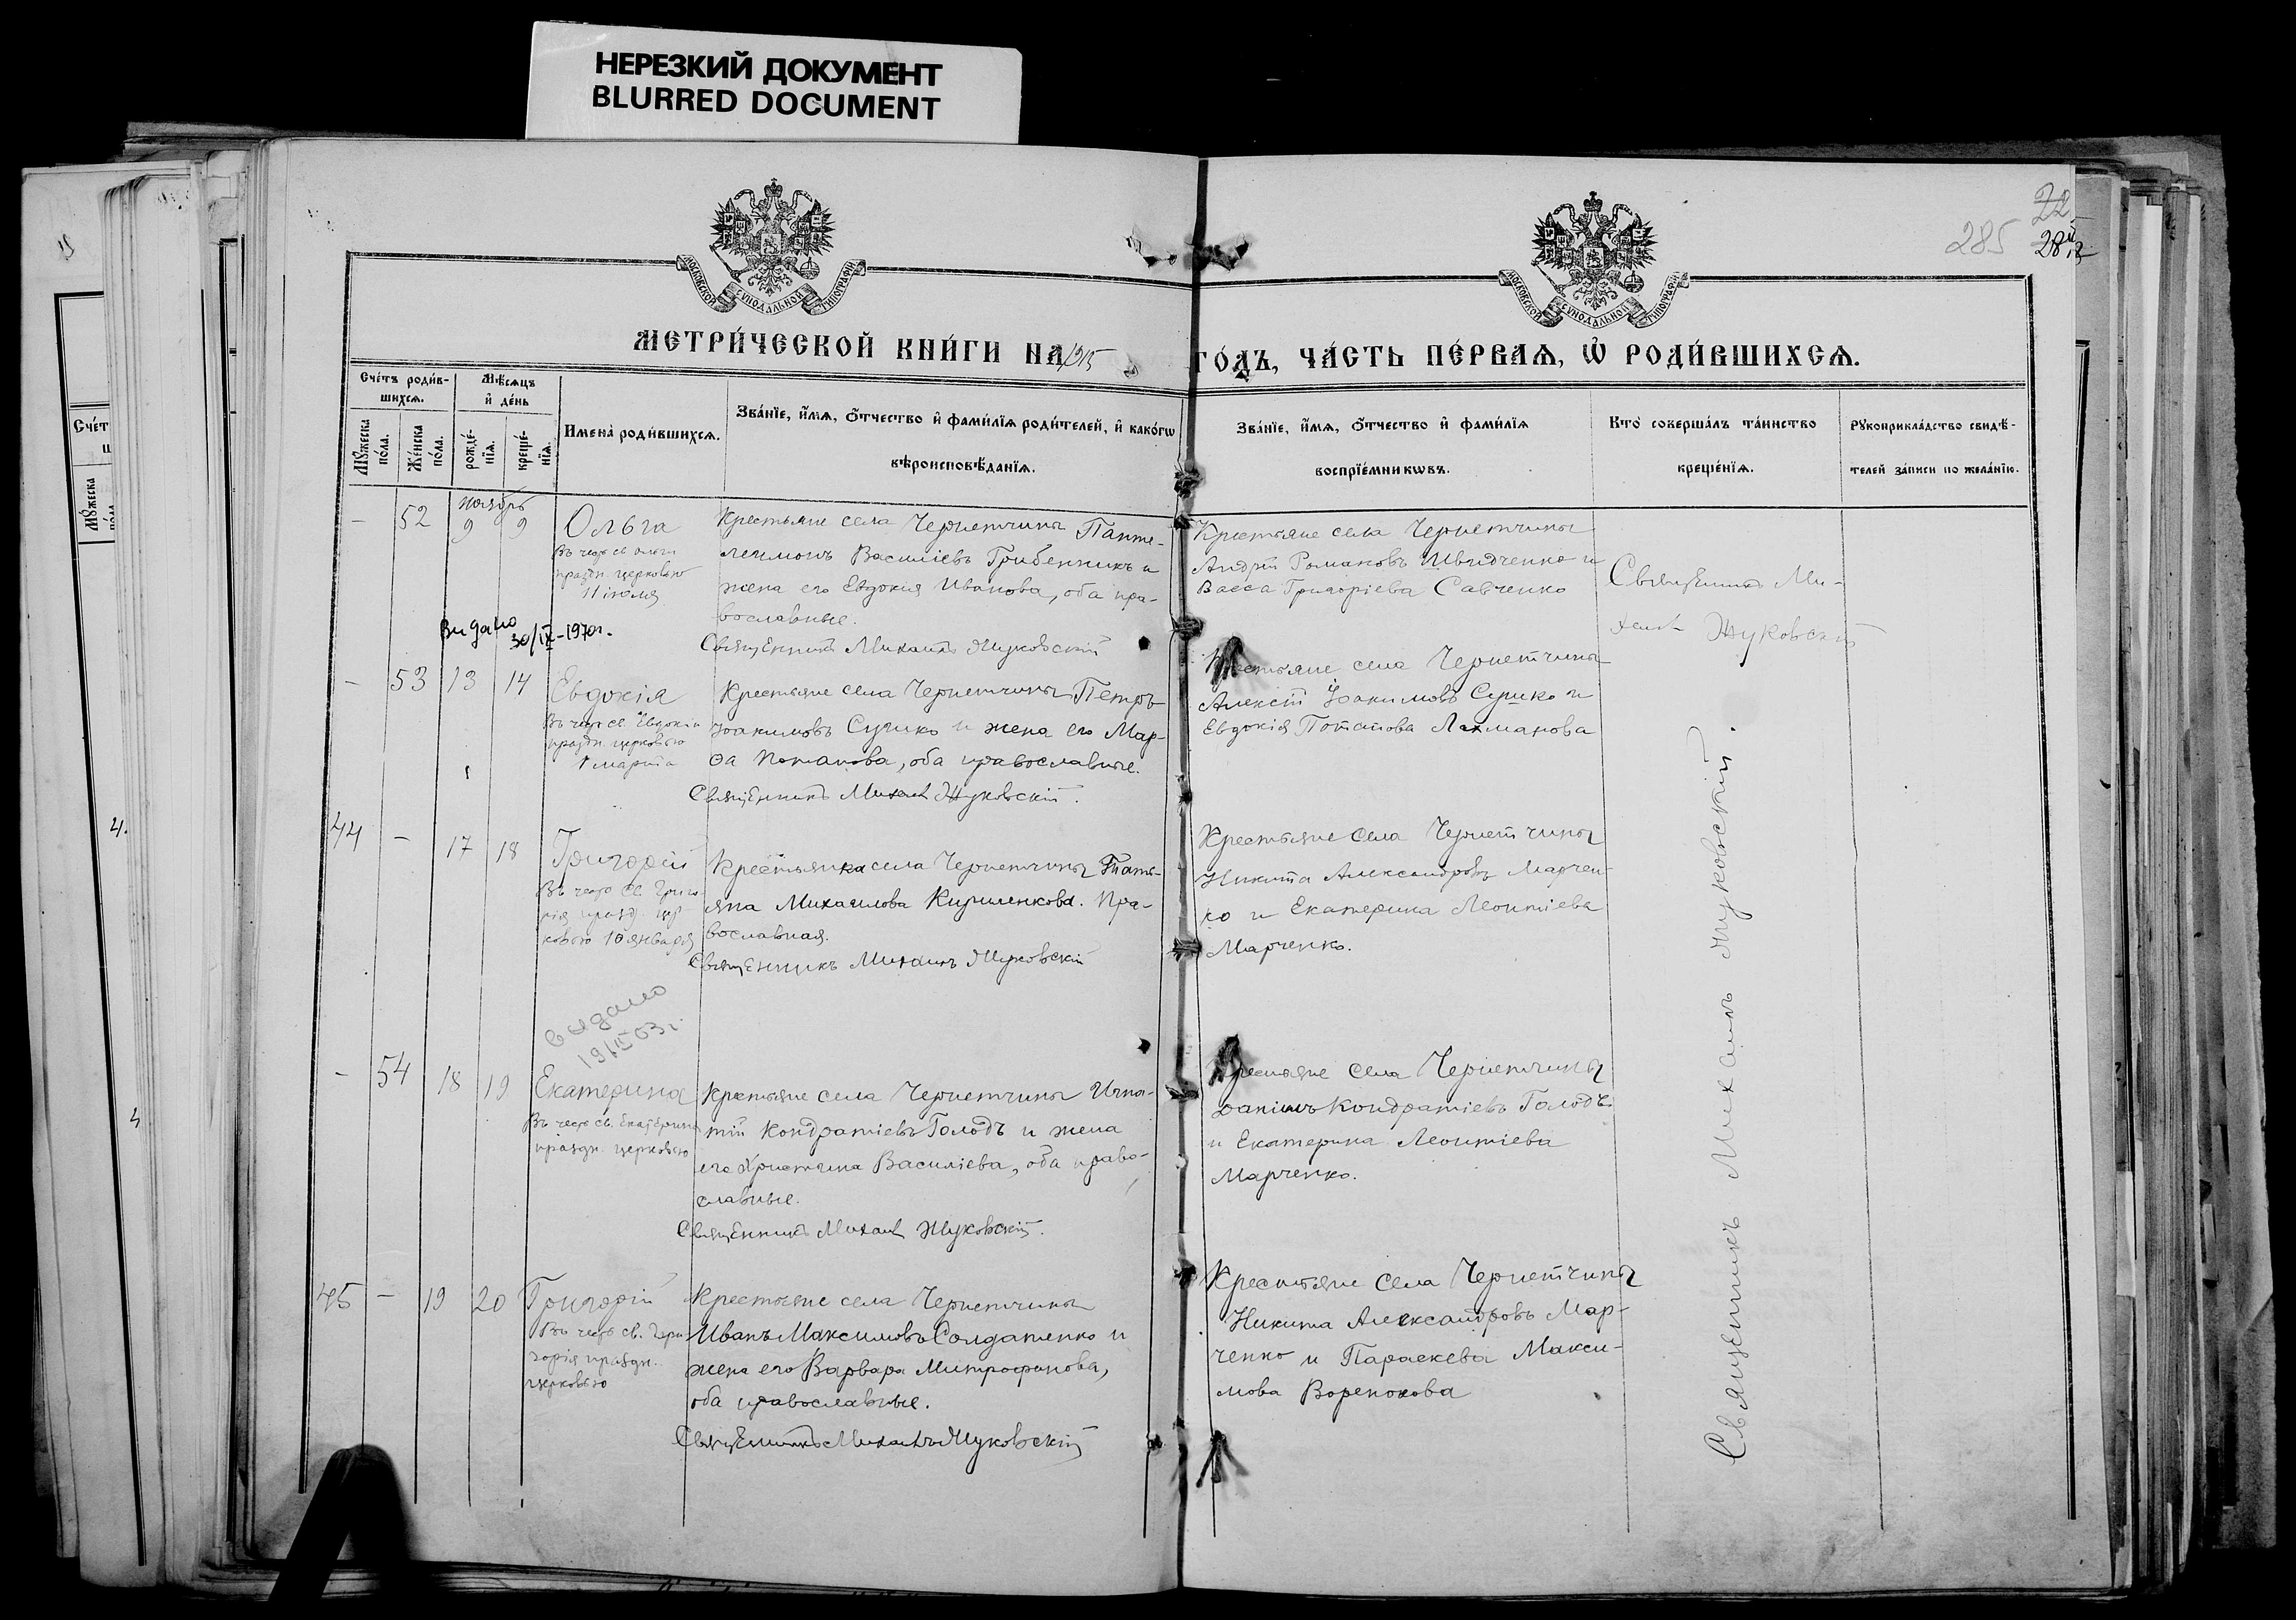 НЕРЕЗКИЙ ДОКУМЕНТ
BLURRED DOCUMENT
22
285
МОСКОВСКОЙ СУНОДАЛЬНОЙ ТИПОГРАФІИ
МОСКОВСКОЙ СУНОДАЛЬНОЙ ТИПОГРАФІИ
МЕТРИ́ЧЕСКОЙ КНИ́ГИ НА 1915 ГО́ДЪ, ЧА́СТЬ ПЕ́РВАЯ, Ѡ҆ РОДИ́ВШИХСЯ.
Сче́тъ роди́в-
шихся.
Мѣсяцъ
и҆ де́нь
Мꙋ́жеска
по́ла.
Же́нска
по́ла.
рожде́-
нїя.
креще́-
нїя.
Имена̀ роди́вшихся.
Зва́нїе, и҆́мя, ѻ҆́тчество и҆ фами́лїя роди́телей, и҆ како́гѡ
вѣроисповѣ́данїя.
Зва́нїе, и҆́мя, ѻ҆́тчество и҆ фами́лїя
воспрїе́мникѡвъ.
Кто̀ соверша́лъ та́инство
креще́нїя.
Рꙋкоприкла́дство свидѣ́-
телей за́писи по жела́нїю.
Ноябрь
- 52 9 9
Ольга
Въ честь св. Ольги
праздн. церковью
11 іюля
Крестьяне села Чернетчины Панте-
леимонъ Василіевъ Гребенникъ и
жена его Евдокія Иванова, оба пра-
вославные.
Священникъ Михаилъ Жуковскій
Крестьяне села Чернетчины
Андрей Романовъ Швидченко и
Васса Григоріева Савченко
Священникъ Ми-
хаилъ Жуковскій
Видано
30/IX-1970г.
- 53 13 14
Евдокія
Въ честь св. Евдокіи
праздн. церковью
1 марта
Крестьяне села Чернетчины Петръ
Іоакимовъ Сушко и жена его Мар-
ѳа Потапова, оба православные.
Священникъ Михаилъ Жуковскій.
Крестьяне села Чернетчины
Алексей Іоакимовъ Сушко и
Евдокія Потапова Лахманова
44 - 17 18
Григорій
Въ честь св. Григо-
рія празд. цер-
ковью 10 января
Крестьянка села Чернетчины Тать-
яна Михаилова Кириленкова. Пра-
вославная.
Священникъ Михаилъ Жуковскій
Крестьяне села Чернетчины
Никита Александровъ Марчен-
ко и Екатерина Леонтіева
Марченко.
Священникъ Михаилъ Жуковскій.
выдано
- 54 18 19
Екатерина
Въ честь св. Екатерины
праздн. церковью
Крестьяне села Чернетчины Игна-
тій Кондратіевъ Голодъ и жена
его Христина Василіева, оба право-
славные.
Священникъ Михаилъ Жуковскій.
Крестьяне села Чернетчины
Даніилъ Кондратіевъ Голодъ
и Екатерина Леонтіева
Марченко.
45 - 19 20
Григорій
Въ честь св. Гри-
горія праздн.
церковью
Крестьяне села Чернетчины
Иванъ Максимовъ Солдатенко и
жена его Варвара Митрофанова,
оба православные.
Священникъ Михаилъ Жуковскій
Крестьяне села Чернетчины
Никита Александровъ Мар-
ченко и Параскева Макси-
мова Воренокова